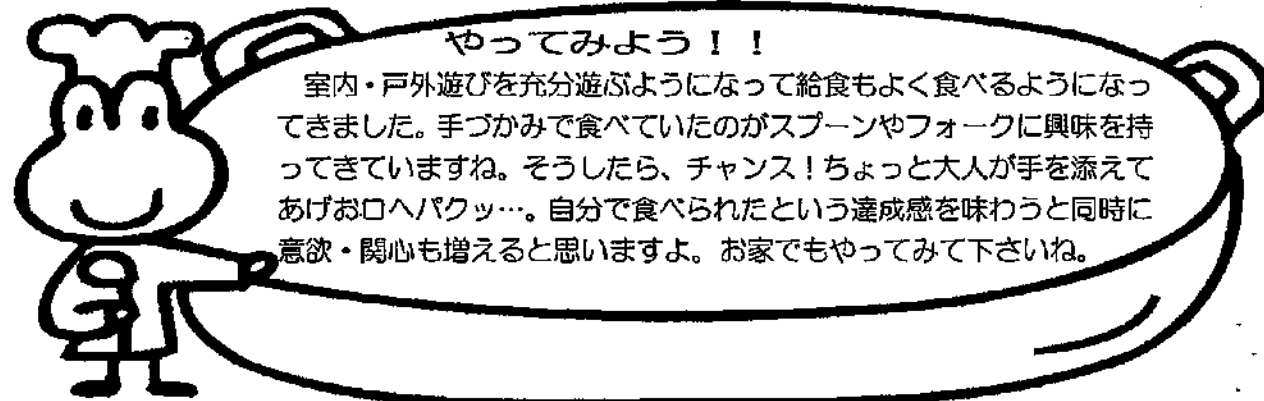 やってみよう！！
室内・戸外遊びを充分遊ぶようになって給食もよく食べるようになっ
てきました。手づかみで食べていたのがスプーンやフォークに興味を持
ってきていますね。そうしたら、チャンス！ちょっと大人が手を添えて
あげお口へパクッ…。自分で食べられたという達成感を味わうと同時に
意欲・関心も増えると思いますよ。お家でもやってみて下さいね。